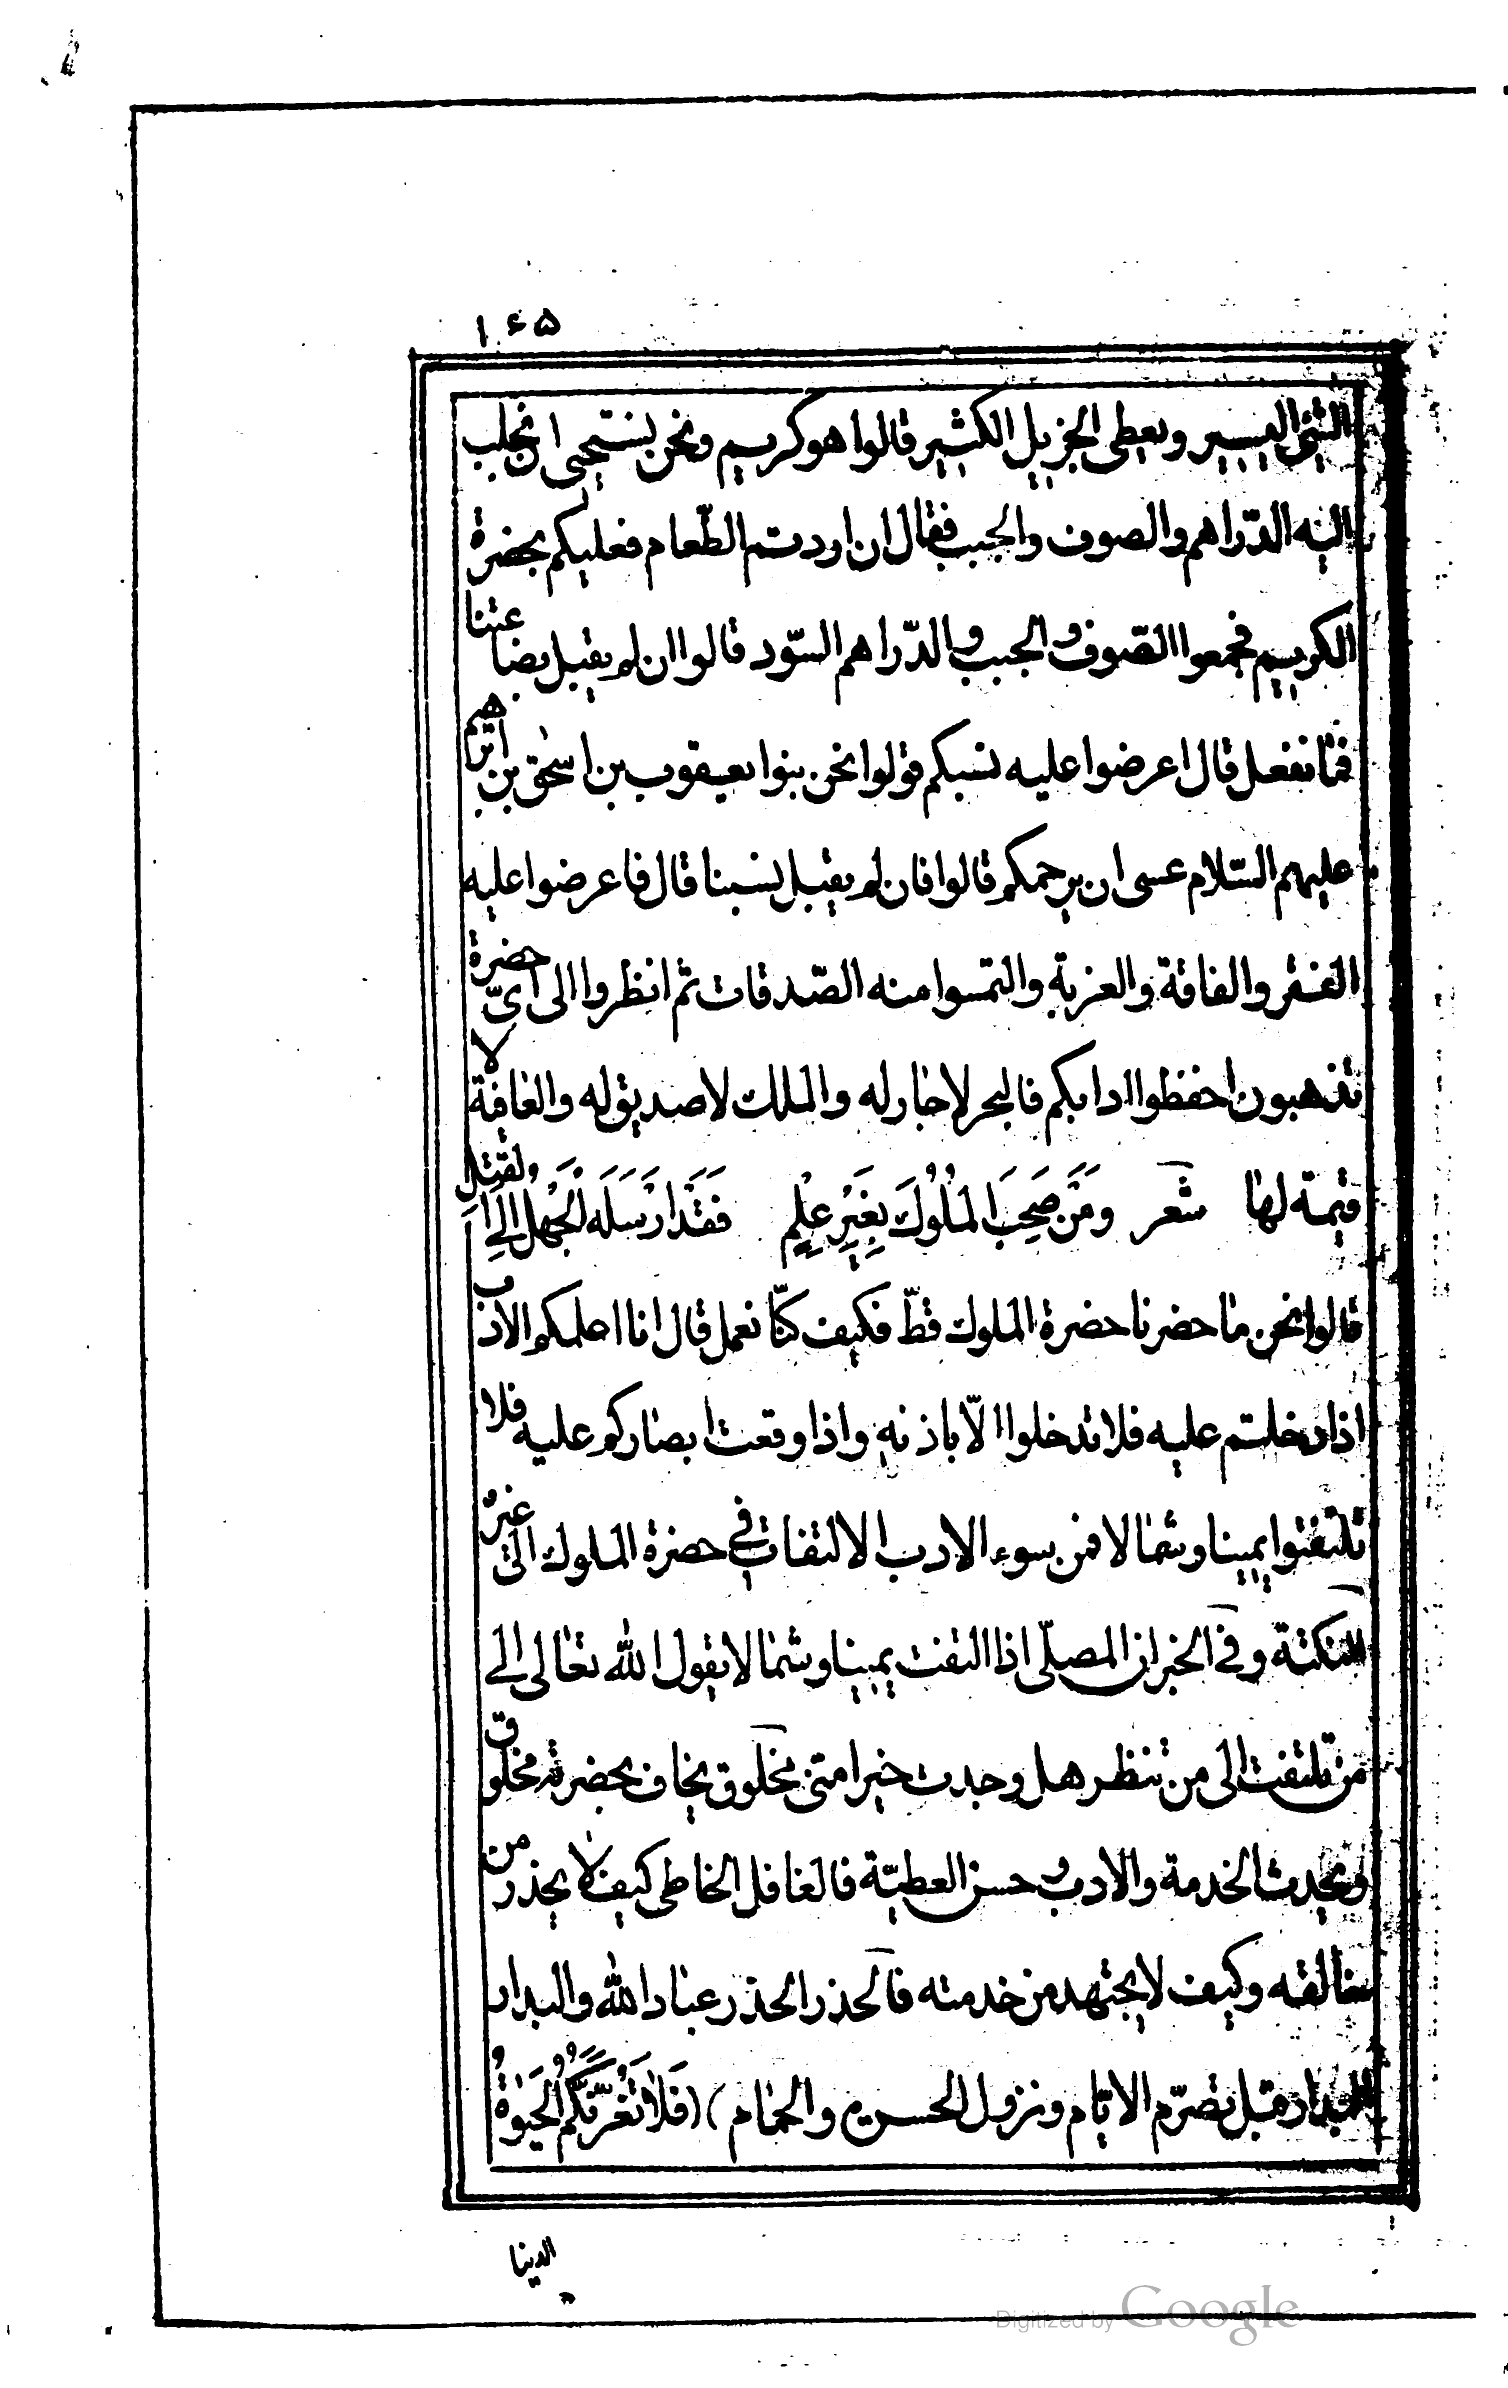 ۱۶۵
الشئ اليسير ويعطى الجزيل الكثير قالوا هو كريم ونحن نستحيى ان نجلب
اليه الدّراهم والصوف والجبب فقال ان اردتم الطّعام فعليكم بحضرة
الكريم فجمعوا الصّوف والجبب والدّراهم السّود قالوا ان لم يقبل بضاعتنا
فما نفعل قال اعرضوا عليه نسبكم قولوا نحن بنوا يعقوب بن اسحٰق بن ابراهيم
عليهم السّلام عسى ان يرحمكم قالوا فان لم يقبل نسبنا قال فاعرضوا عليه
الفقر والفاقة والغربة والتمسوا منه الصّدقات ثم انظروا الى اىّ حضرة
تذهبون احفظوا ادابكم فالبحر لا جار له والملك لا صديق له والعافية لا
قيمة لها شعر وَمَنْ صَحِبَ المُلُوكَ بِغَيْرِ عِلْمٍ فَقَدْ اَرْسَلَهُ الْجَهْلُ اِلَى القتل
قالوا نحن ما حضرنا حضرة الملوك قطّ فكيف كنّا نعمل قال انا اعلمكم الادب
اذا دخلتم عليه فلا تدخلوا الّا باذنه واذا وقعت ابصاركم عليه فلا
تلتفتوا يمينا وشمالا فمن سوء الادب الالتفات في حضرة الملوك الى غيرٍ
النكتة وفي الخبر ان المصلّى اذا التفت يمينا وشمالا يقول الله تعالى الى
من تلتفت الى من تنظر هل وجدت خيرا منى مخلوق يخاف بحضرته مخلوق
ويحدث الخدمة والادب وحسن العطيّة فالغافل الخاطى كيف لا يحذر من
مخالفه وكيف لا يجتهد من خدمته فالحذر الحذر عباد الله والبدار
البدار قبل تصرّم الايّام ونزول الحسر يم والحمام (فَلَا تَغُرَّنَّكُمُ الْحَيٰوةُ
الدنيا
Digitized by Google